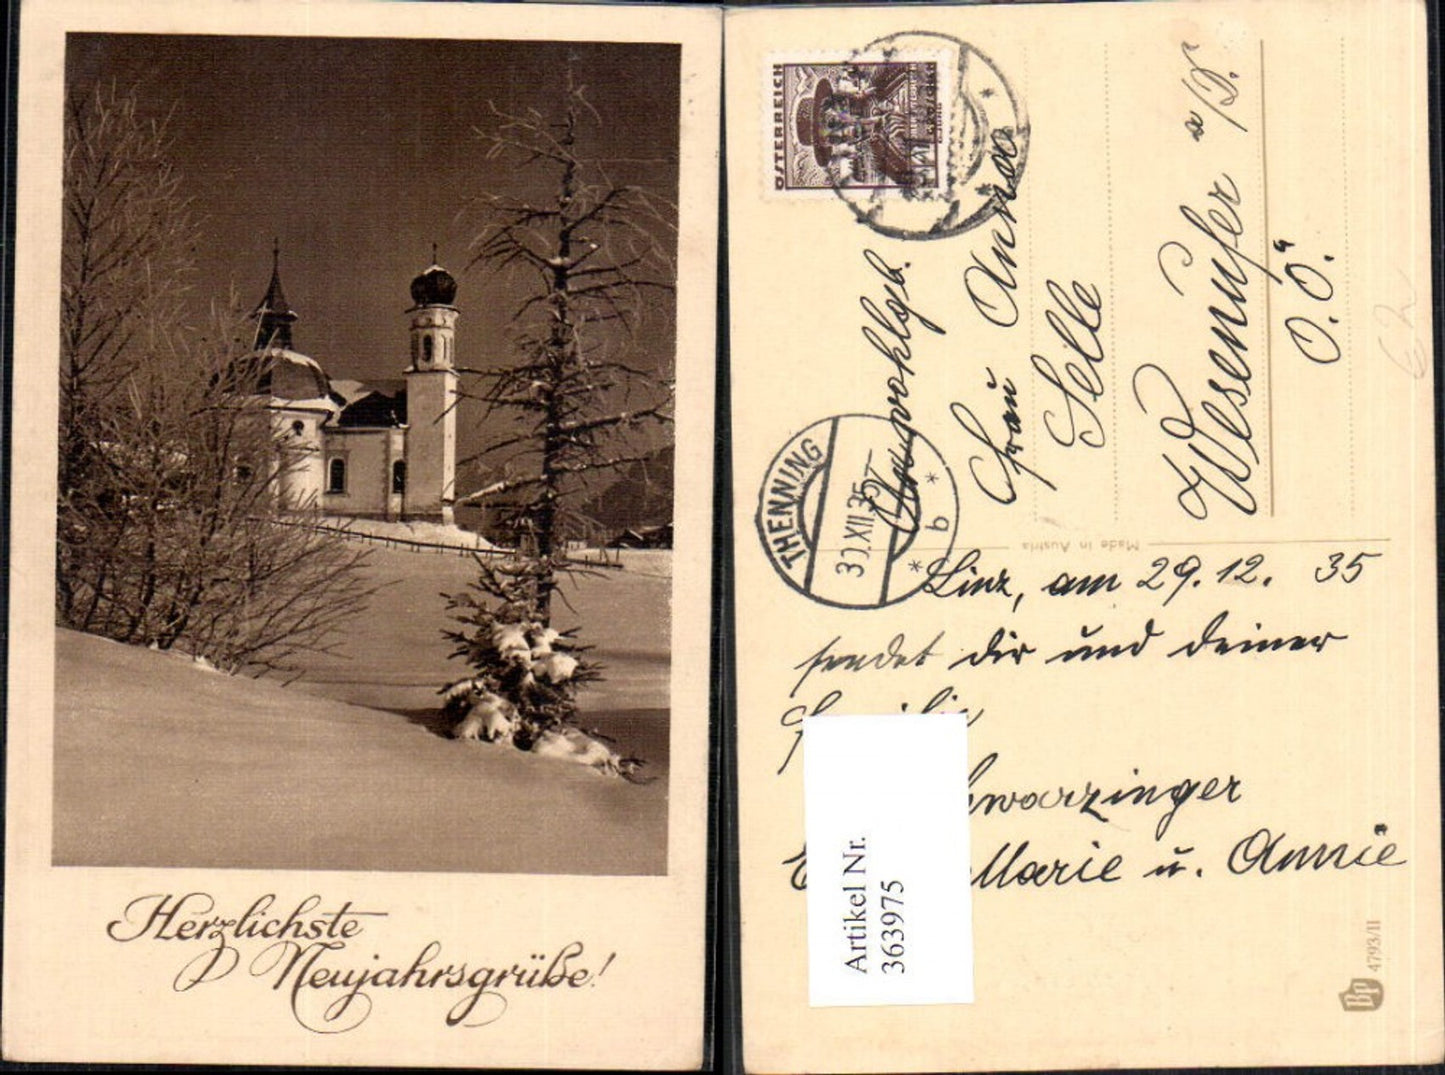 Herzlichste
Neujahrsgrüße!
ÖSTERREICH
THENNING
30.XII.35
* b *
An wohlgeb.
Frau Anna
Selle
Wesenufer a/D.
O.Ö.
Made in Austria
Linz, am 29.12. 35
sendet dir und deiner
Marie u. Annie
Artikel Nr.
363975
Bp 4793/II